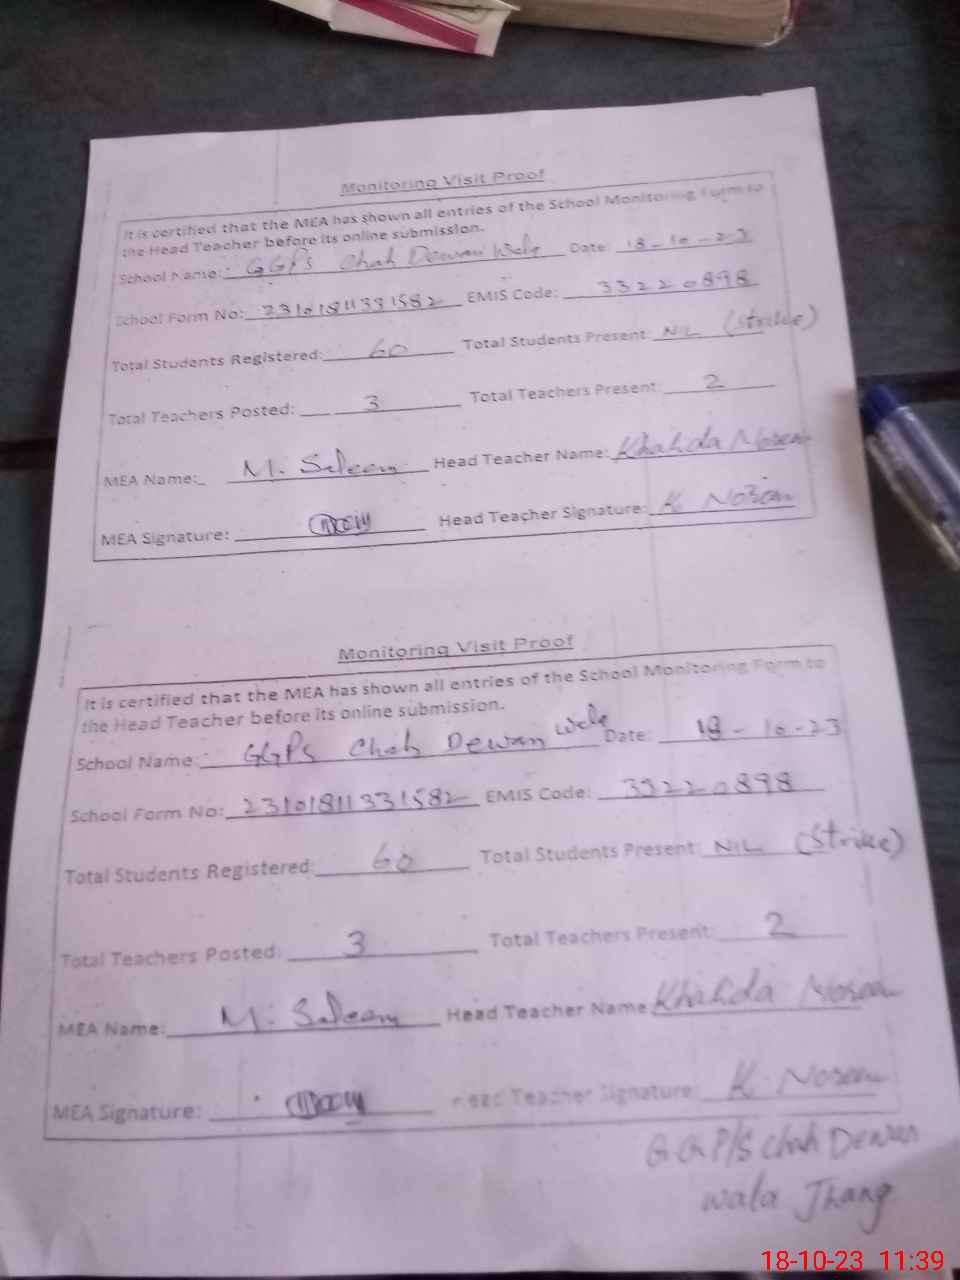 Monitoring Visit Proof
It is certified that the MEA has shown all entries of the School Monitoring Form to
the Head Teacher before its online submission.
School Name: GGPS Chah Dewan Wala Date: 18-10-23
School Form No: 23101811331582 EMIS Code: 33220898
Total Students Registered: 60 Total Students Present: NIL (Strike)
Total Teachers Posted: 3 Total Teachers Present: 2
MEA Name: M. Saleem Head Teacher Name: Khahda Noreen
MEA Signature: Head Teacher Signature: K Noreen
Monitoring Visit Proof
It is certified that the MEA has shown all entries of the School Monitoring Form to
the Head Teacher before its online submission.
School Name: GGPS Chah Dewan Wala Date: 18-10-23
School Form No: 23101811331582 EMIS Code: 33220898
Total Students Registered: 60 Total Students Present: NIL (Strike)
Total Teachers Posted: 3 Total Teachers Present: 2
MEA Name: M. Saleem Head Teacher Name Khahda Noreen
MEA Signature: Head Teacher Signature: K. Noreen
GGP/S chah Dewan
wala Jhang
18-10-23 11:39